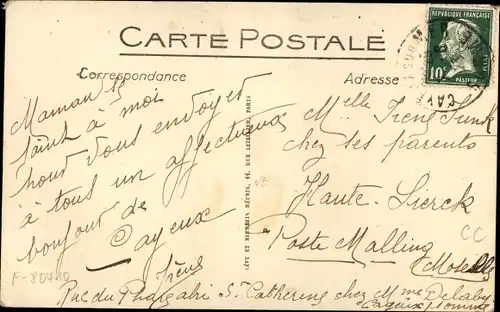 CARTE POSTALE
Correspondance
Adresse
RÉPUBLIQUE FRANÇAISE
10c
PASTEUR
POSTES
CAY
Maman se
joint à moi
pour vous envoyer
à tous un affectueux
bonjour de
Cayeux
Irène
LÉVY ET NEURDEIN RÉUNIS, 44, RUE LETELLIER, PARIS
Melle Irène
chez ses parents
Haute-Sierck
Poste Malling
Moselle
Rue du Phare St Catherine chez Mme Delaby
Cayeux Somme
F-80410
vz
CC